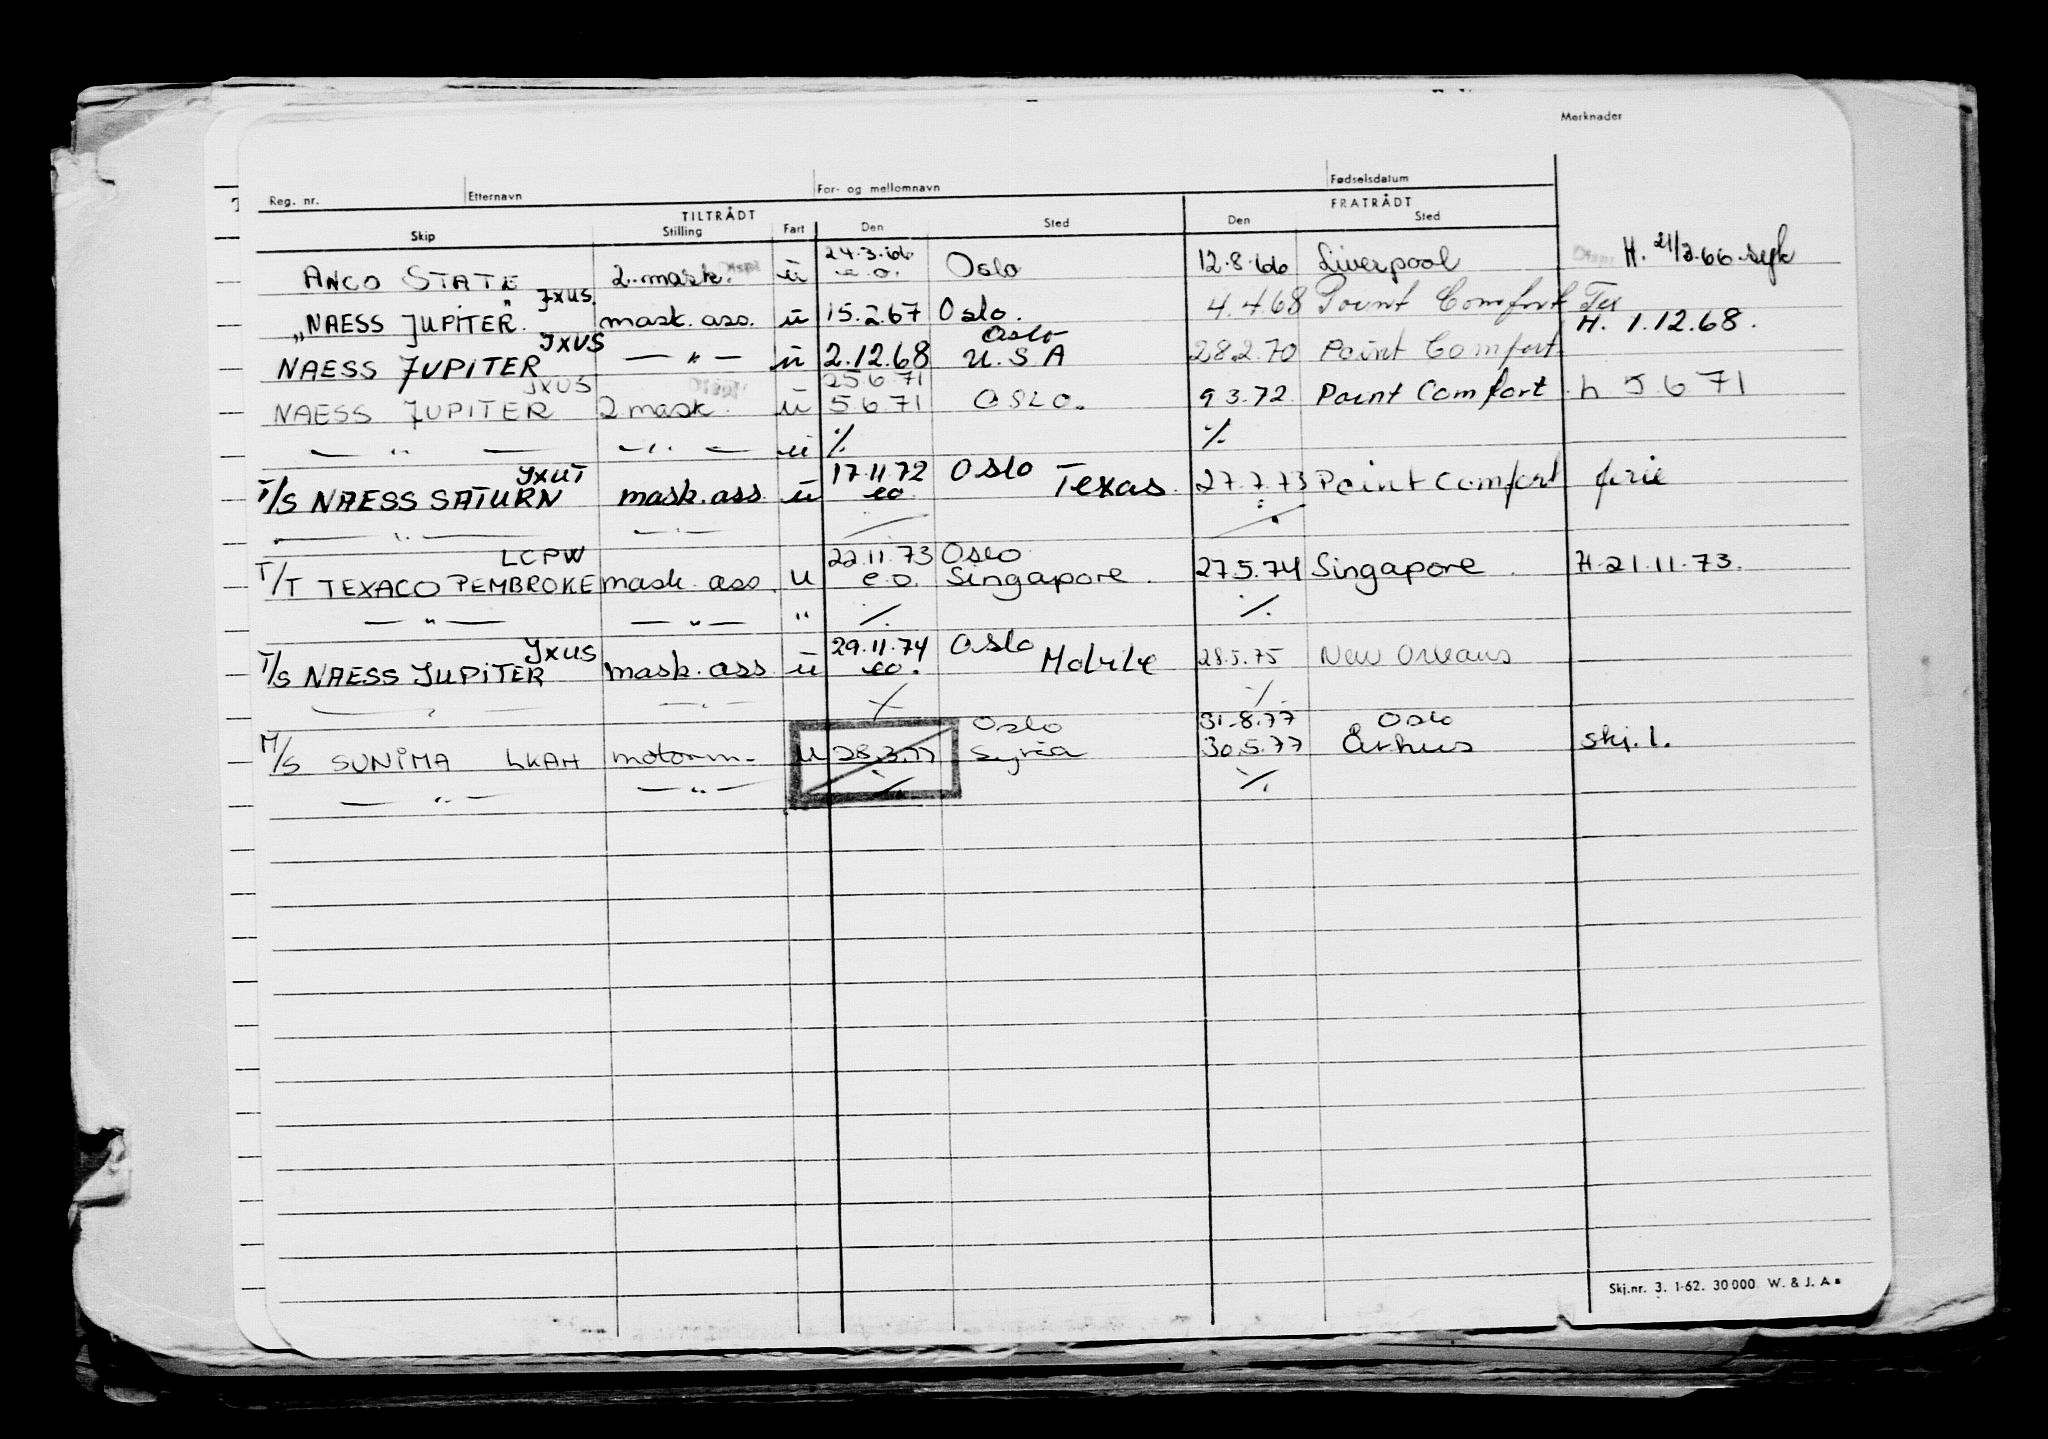 Merknader
Reg. nr. Etternavn For- og mellomnavn Fødselsdatum
TILTRÅDT FRATRÅDT
Skip Stilling Fart Den Sted Den Sted
24.3.66
ANCO STATE 2. mask. u e.o. Oslo 12.8.66 Liverpool H. 21/3.66. syk
JXUS.
"NAESS JUPITER." mask. ass. u 15.2.67 Oslo. 4.4.68 Point Comfort Tex
Oslo H. 1.12.68.
JXUS
NAESS JUPITER — " — u 2.12.68 U.S.A 28.2.70 Point Comfort.
JXUS 25.6.71
NAESS JUPITER 2 mask. u 5.6.71 OSLO. 9.3.72. Point Comfort. h 5.6.71
— " — — " — u ./. ./.
JXUT 17.11.72 Oslo
T/S NAESS SATURN mask. ass. u eo. Texas. 27.7.73 Point Comfort ferie
— " — — " —
LCPW 22.11.73 Oslo
T/T TEXACO PEMBROKE mask. ass. u e.o. Singapore. 27.5.74 Singapore. H. 21.11.73.
— " — — " — " ./. ./.
JXUS 29.11.74 Oslo
T/S NAESS JUPITER mask. ass. u eo. Mobile 28.5.75 New Orleans
— " — — " — ./. ./.
Oslo 31.8.77 Oslo
M/S SUNIMA LKAH motorm. u 28.3.77 Syria 30.5.77 Århus skj. 1.
— " — — " — ./. ./.
Skj.nr. 3. 1-62. 30000. W. & J. A s